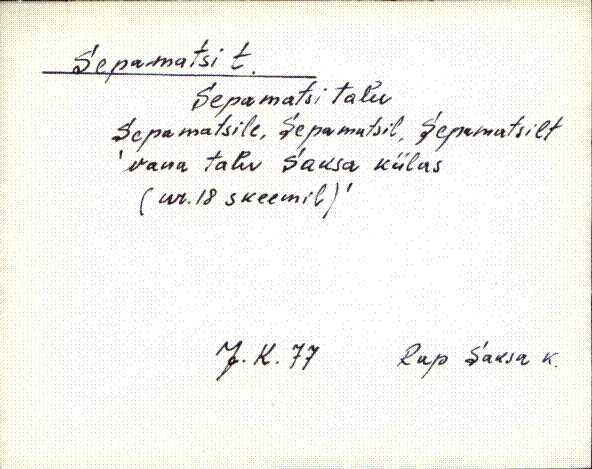 Sepamatsi t.
Sepamatsi talu
Sepamatsile, Sepamatsil, Sepamatsilt
'vana talu Saksa külas
(nr. 18 skeemil)'
J. K. 77 Rap Saksa k.